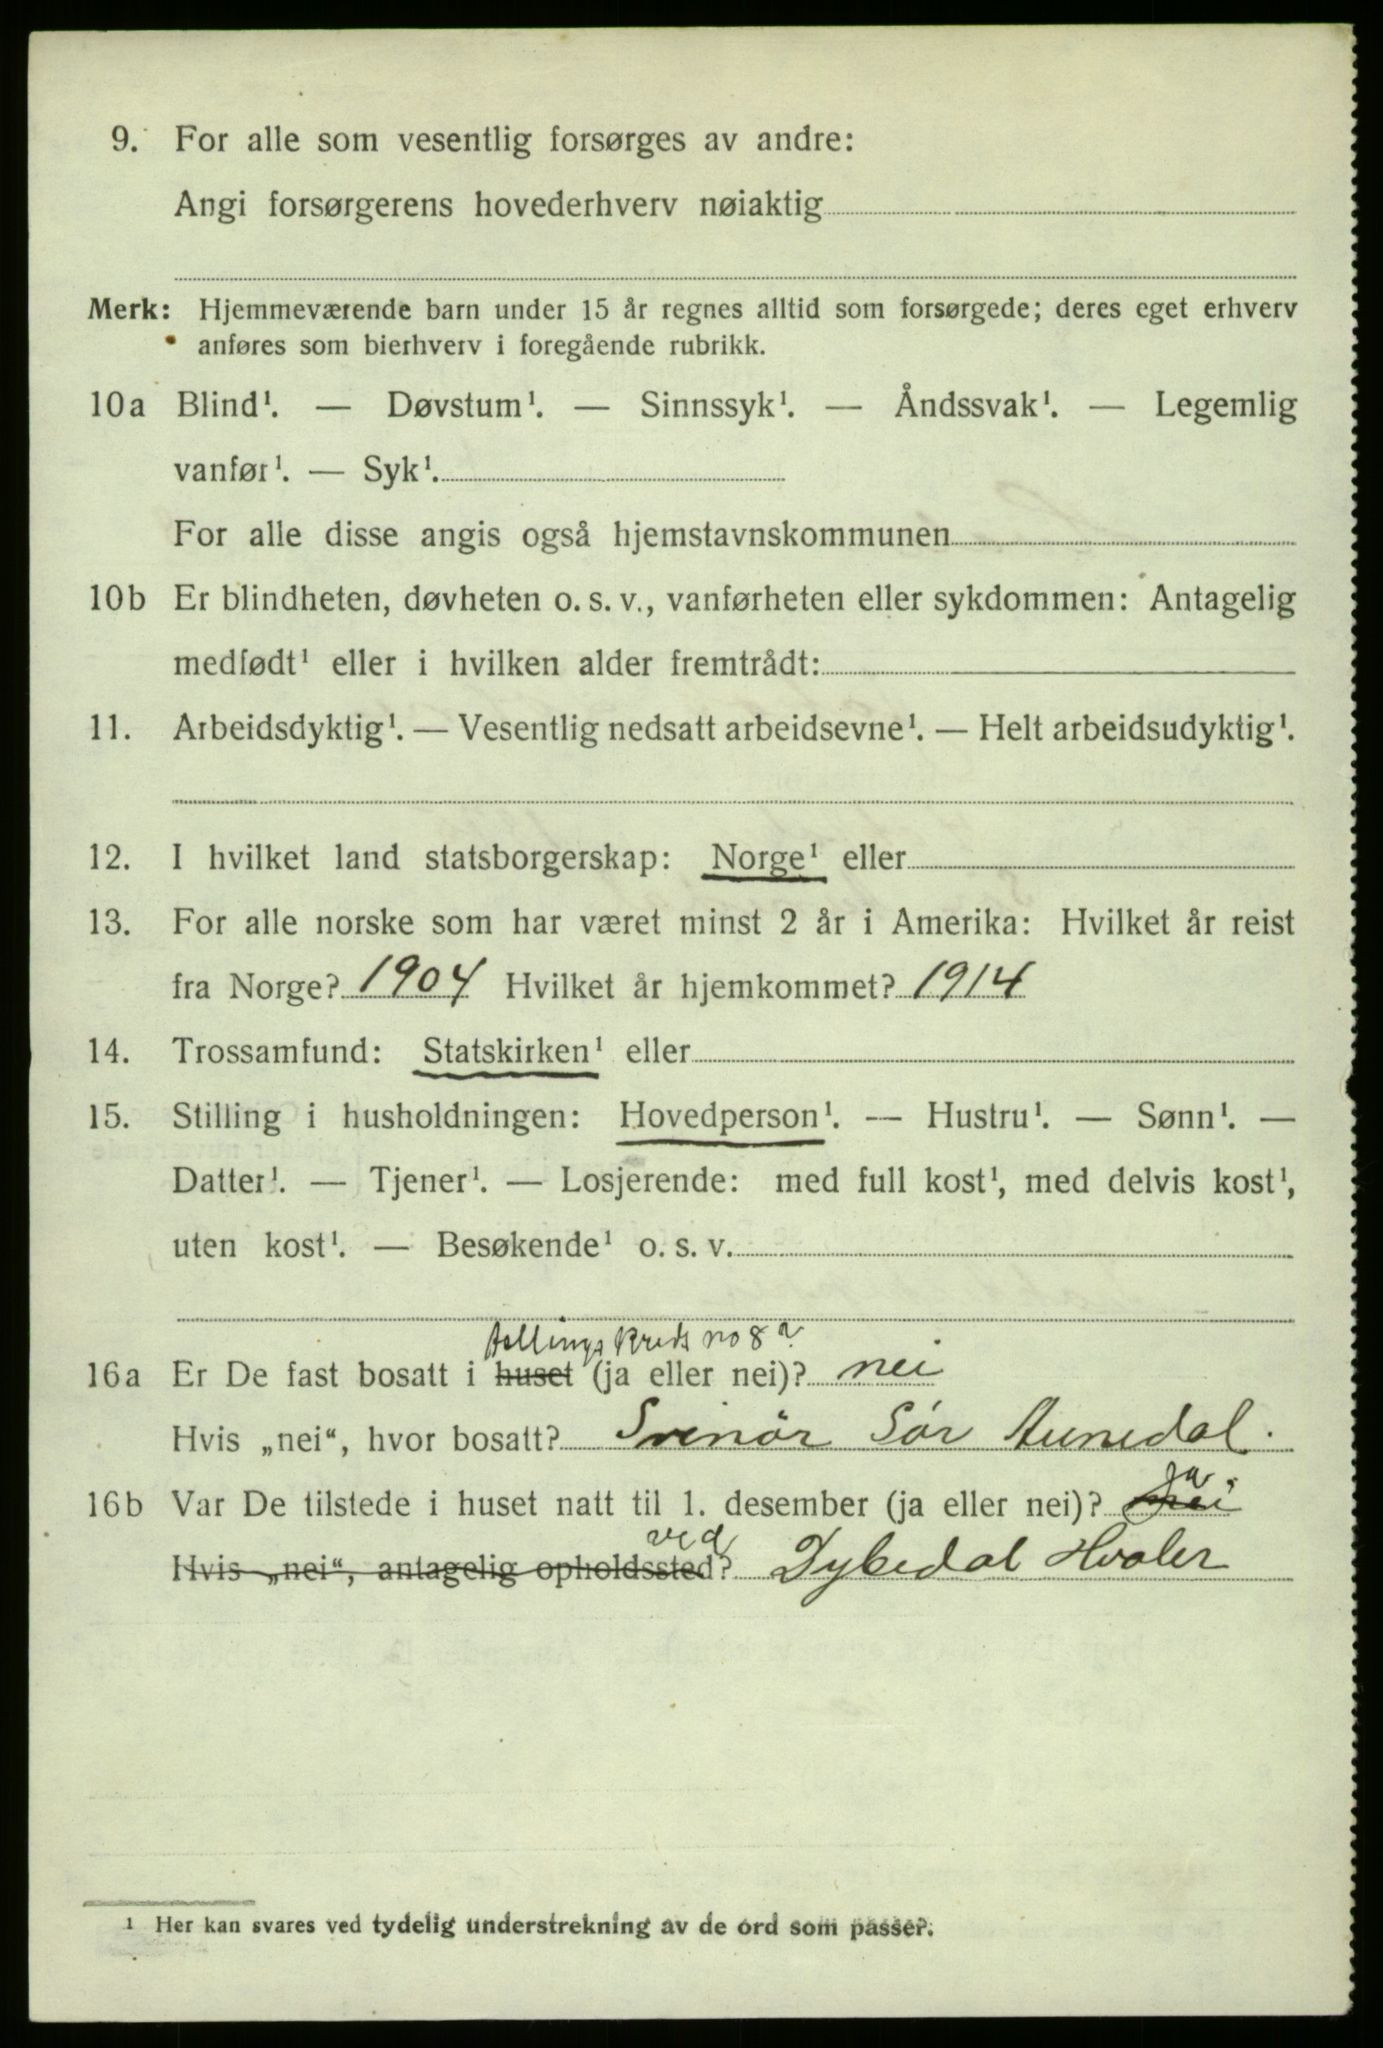 9. For alle som vesentlig forsørges av andre:
Angi forsørgerens hovederhverv nøiaktig
Merk: Hjemmeværende barn under 15 år regnes alltid som forsørgede; deres eget erhverv
anføres som bierhverv i foregående rubrikk.
10a Blind¹. — Døvstum¹. — Sinnssyk¹. — Åndssvak¹. — Legemlig
vanfør¹. — Syk¹.
For alle disse angis også hjemstavnskommunen
10b Er blindheten, døvheten o. s. v., vanførheten eller sykdommen: Antagelig
medfødt¹ eller i hvilken alder fremtrådt:
11. Arbeidsdyktig¹. — Vesentlig nedsatt arbeidsevne¹. — Helt arbeidsudyktig¹.
12. I hvilket land statsborgerskap: Norge¹ eller
13. For alle norske som har været minst 2 år i Amerika: Hvilket år reist
fra Norge? 1904 Hvilket år hjemkommet? 1914
14. Trossamfund: Statskirken¹ eller
15. Stilling i husholdningen: Hovedperson¹. — Hustru¹. — Sønn¹. —
Datter¹. — Tjener¹. — Losjerende: med full kost¹, med delvis kost¹,
uten kost¹. — Besøkende¹ o. s. v.
tellings kreds no 8?
16a Er De fast bosatt i huset (ja eller nei)? nei
Hvis „nei“, hvor bosatt? Svinör Sör Aunedal.
ja
16b Var De tilstede i huset natt til 1. desember (ja eller nei)? nei
ved
Hvis „nei“, antagelig opholdssted? Dybedal Hvaler
¹ Her kan svares ved tydelig understrekning av de ord som passer.